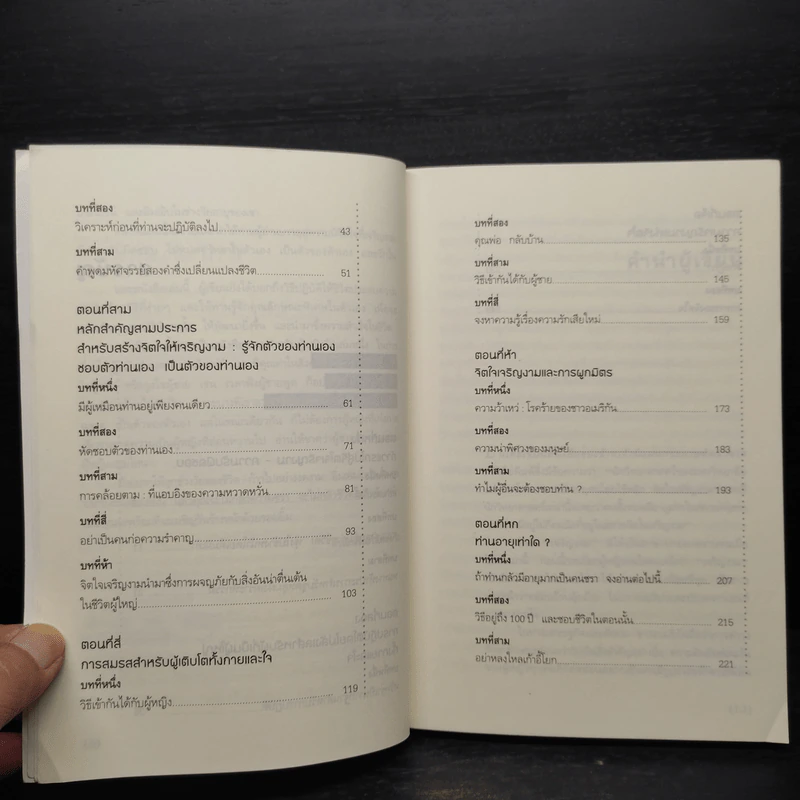 บทที่สอง
วิเคราะห์ก่อนที่ท่านจะปฏิบัติลงไป 43
บทที่สาม
คำพูดมหัศจรรย์สองคำซึ่งเปลี่ยนแปลงชีวิต 51
ตอนที่สาม
หลักสำคัญสามประการ
สำหรับสร้างจิตใจให้เจริญงาม : รู้จักตัวของท่านเอง
ชอบตัวท่านเอง เป็นตัวของท่านเอง
บทที่หนึ่ง
มีผู้เหมือนท่านอยู่เพียงคนเดียว 61
บทที่สอง
หัดชอบตัวของท่านเอง 71
บทที่สาม
การคล้อยตาม : ที่แอบอิงของความหวาดหวั่น 81
บทที่สี่
อย่าเป็นคนก่อความรำคาญ 93
บทที่ห้า
จิตใจเจริญงามนำมาซึ่งการผจญภัยกับสิ่งอันน่าตื่นเต้น
ในชีวิตผู้ใหญ่ 103
ตอนที่สี่
การสมรสสำหรับผู้เติบโตทั้งกายและใจ
บทที่หนึ่ง
วิธีเข้ากันได้กับผู้หญิง 119
บทที่สอง
คุณพ่อ กลับบ้าน 135
บทที่สาม
วิธีเข้ากันได้กับผู้ชาย 145
บทที่สี่
จงหาความรู้เรื่องความรักเสียใหม่ 159
ตอนที่ห้า
จิตใจเจริญงามและการผูกมิตร
บทที่หนึ่ง
ความว้าเหว่ : โรคร้ายของชาวอเมริกัน 173
บทที่สอง
ความน่าพิศวงของมนุษย์ 183
บทที่สาม
ทำไมผู้อื่นจะต้องชอบท่าน ? 193
ตอนที่หก
ท่านอายุเท่าใด ?
บทที่หนึ่ง
ถ้าท่านกลัวมีอายุมากเป็นคนชรา จงอ่านต่อไปนี้ 207
บทที่สอง
วิธีอยู่ถึง 100 ปี และชอบชีวิตในตอนนั้น 215
บทที่สาม
อย่าหลงไหลเก้าอี้โยก 221